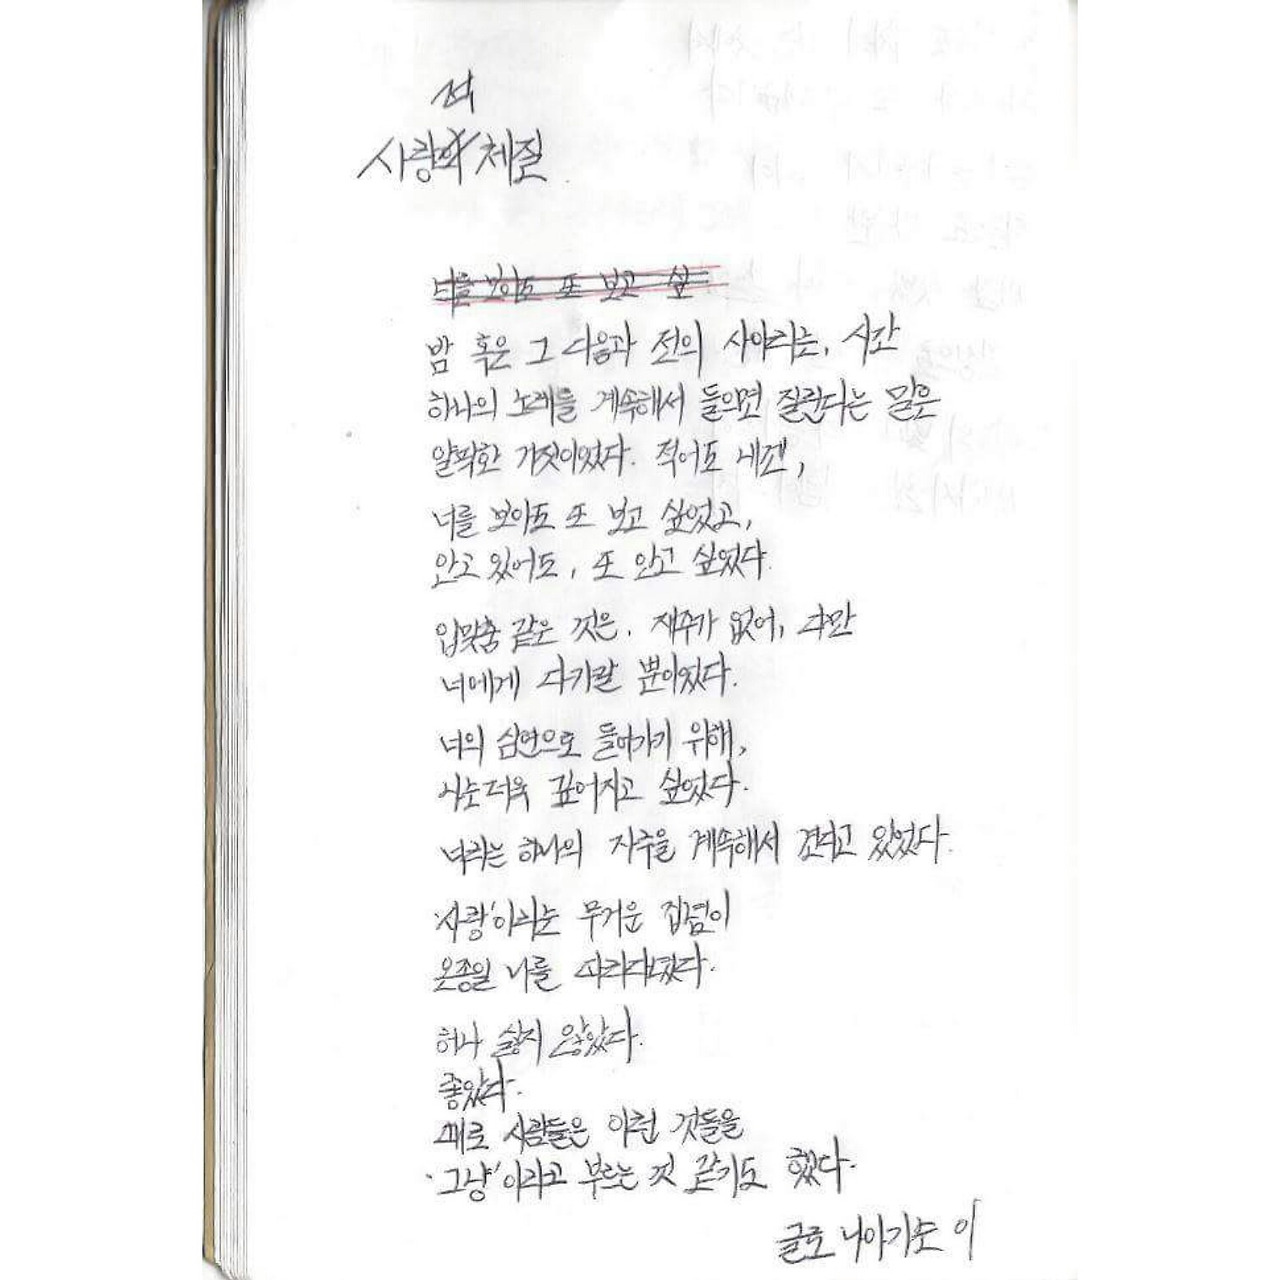 적
사랑의 체질
너를 보아도 또 보고 싶
밤 혹은 그 다음과 전의 사이라는, 시간
하나의 노래를 계속해서 들으면 질린다는 말은
얄팍한 거짓이었다. 적어도 내겐,
너를 보아도 또 보고 싶었고,
안고 있어도, 또 안고 싶었다.
입맞춤 같은 것은. 재주가 없어, 다만
너에게 다가갈 뿐이었다.
너의 심연으로 들어가기 위해,
나는 더욱 깊어지고 싶었다.
너라는 하나의 자주을 계속해서 견디고 있었다.
'사랑'이라는 무거운 집념이
온종일 나를 따라다녔다.
허나 싫지 않았다.
좋았다.
때로 사람들은 이런 것들을
'그냥'이라고 부르는 것 같기도 했다.
글로 나아가는 이